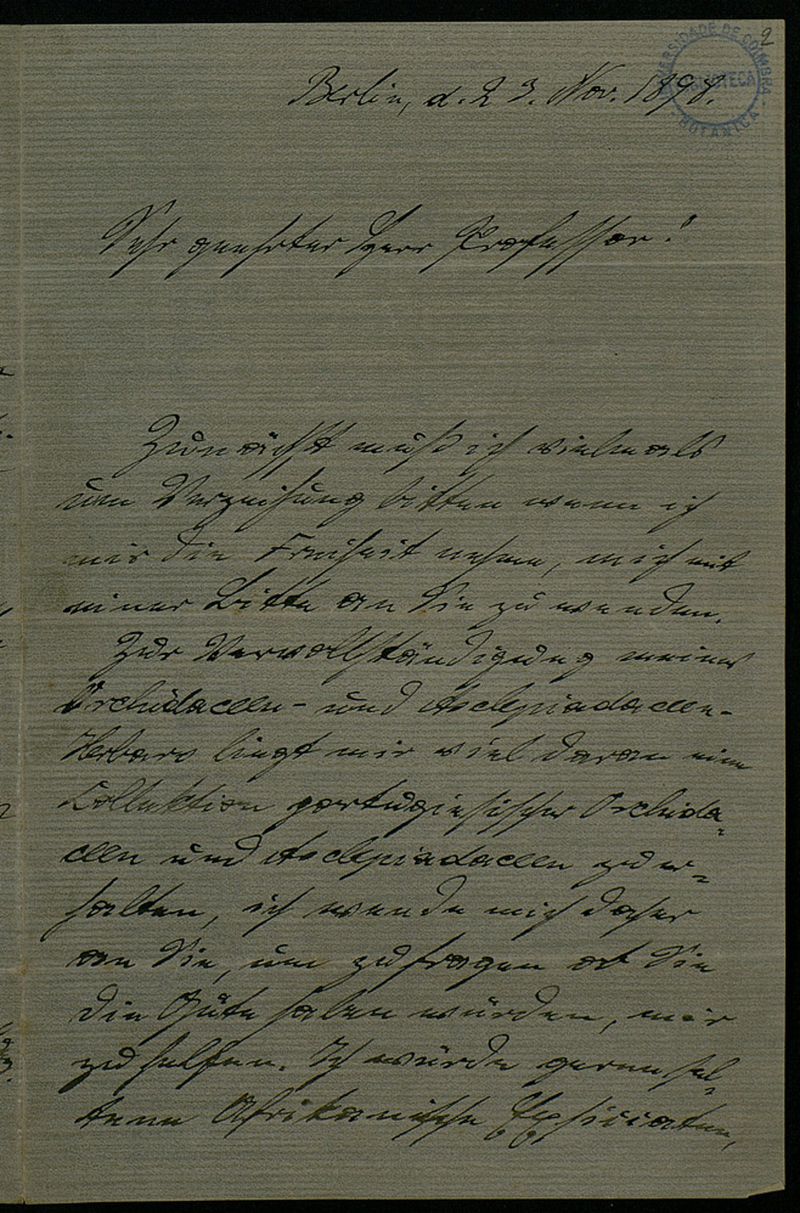 2
UNIVERSIDADE DE COIMBRA
BIBLIOTECA
BOTANICA
Berlin, d. 23. Nov. 1898.
Sehr geehrter Herr Professor!
Zunächst muß ich vielmals
um Verzeihung bitten wenn ich
mir die Freiheit nehme, mich mit
einer Bitte an Sie zu wenden.
Zur Vervollständigung meines
Orchidaceen- und Asclepiadaceen-
Herbars liegt mir viel daran eine
Collektion portugiesischer Orchida-
ceen und Asclepiadaceen zu er-
halten, ich wende mich daher
an Sie, um zu fragen ob Sie
die Güte haben würden, mir
zu helfen. Ich würde gerne sel-
tene Afrikanische Exsiccaten,